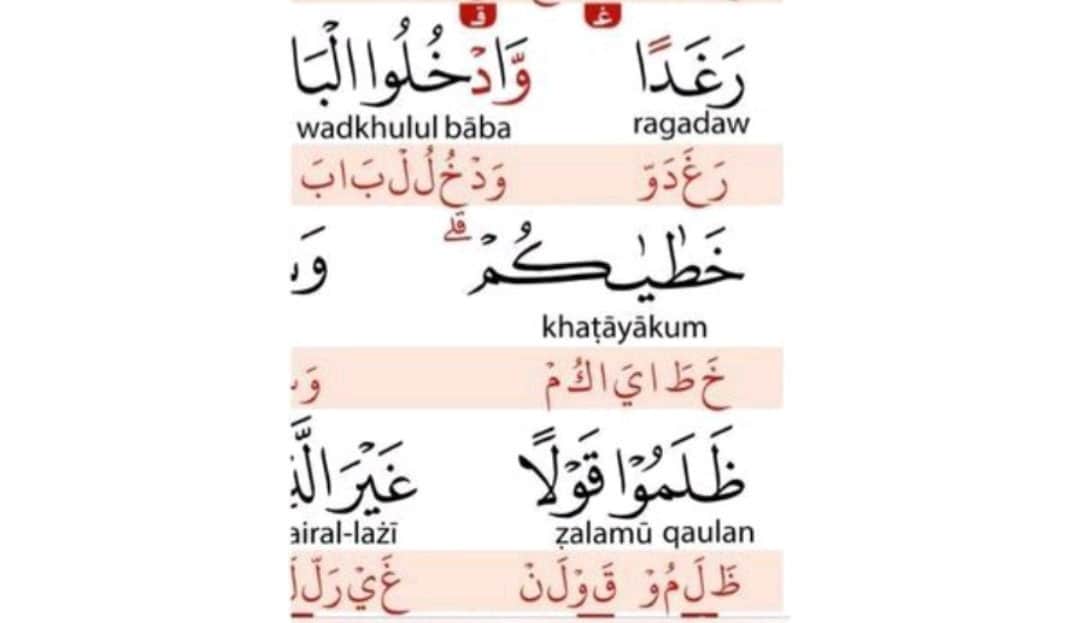 قـ غـ
رَغَدًا وَّادْخُلُوا الْبَا
ragadaw wadkhulul bāba
رَغَدَوّ وَدْخُلُلْبَابَ
خَطٰيٰكُمْ ۗ
khaṭāyākum
خَطَايَاكُمْ
ظَلَمُوْا قَوْلًا غَيْرَ
ẓalamū qaulan airal-lażī
ظَلَمُوْ قَوْلَنْ غَيْرَلّ